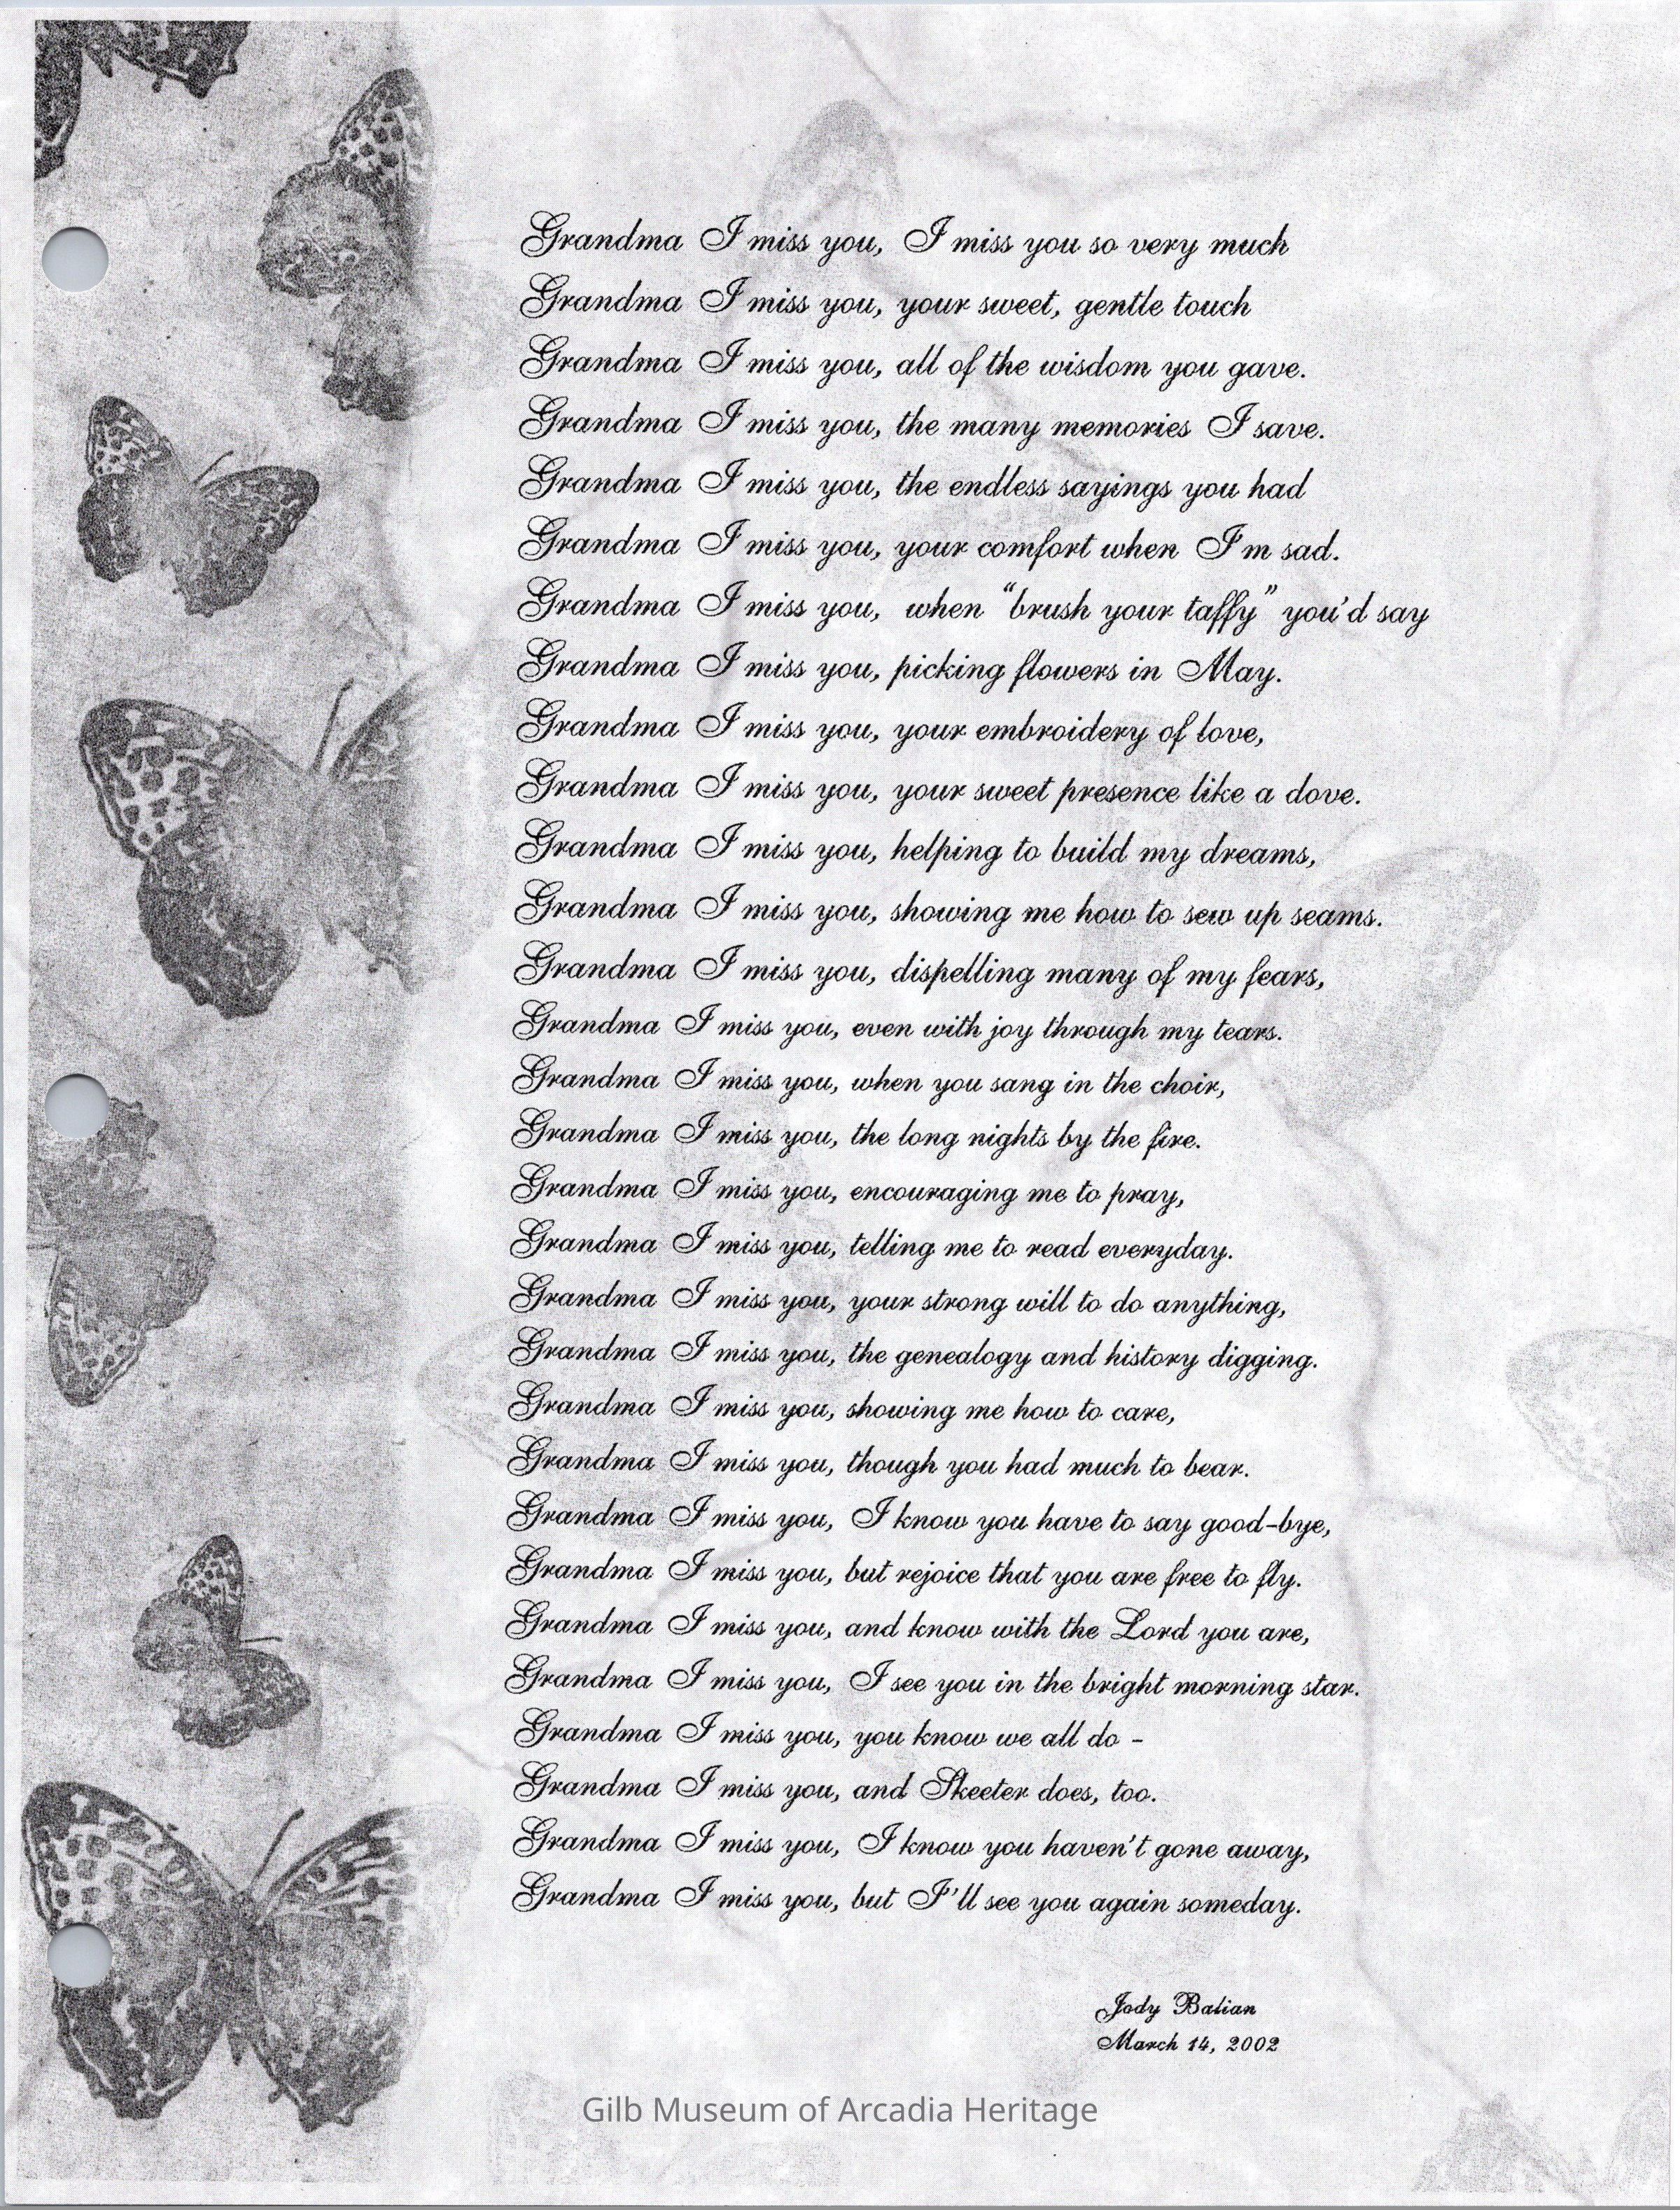 Grandma I miss you, I miss you so very much
Grandma I miss you, your sweet, gentle touch
Grandma I miss you, all of the wisdom you gave.
Grandma I miss you, the many memories I save.
Grandma I miss you, the endless sayings you had
Grandma I miss you, your comfort when I'm sad.
Grandma I miss you, when “brush your taffy” you'd say
Grandma I miss you, picking flowers in May.
Grandma I miss you, your embroidery of love,
Grandma I miss you, your sweet presence like a dove.
Grandma I miss you, helping to build my dreams,
Grandma I miss you, showing me how to sew up seams.
Grandma I miss you, dispelling many of my fears,
Grandma I miss you, even with joy through my tears.
Grandma I miss you, when you sang in the choir,
Grandma I miss you, the long nights by the fire.
Grandma I miss you, encouraging me to pray,
Grandma I miss you, telling me to read everyday.
Grandma I miss you, your strong will to do anything,
Grandma I miss you, the genealogy and history digging.
Grandma I miss you, showing me how to care,
Grandma I miss you, though you had much to bear.
Grandma I miss you, I know you have to say good-bye,
Grandma I miss you, but rejoice that you are free to fly.
Grandma I miss you, and know with the Lord you are,
Grandma I miss you, I see you in the bright morning star.
Grandma I miss you, you know we all do -
Grandma I miss you, and Skeeter does, too.
Grandma I miss you, I know you haven't gone away,
Grandma I miss you, but I'll see you again someday.
Jody Balian
March 14, 2002
Gilb Museum of Arcadia Heritage